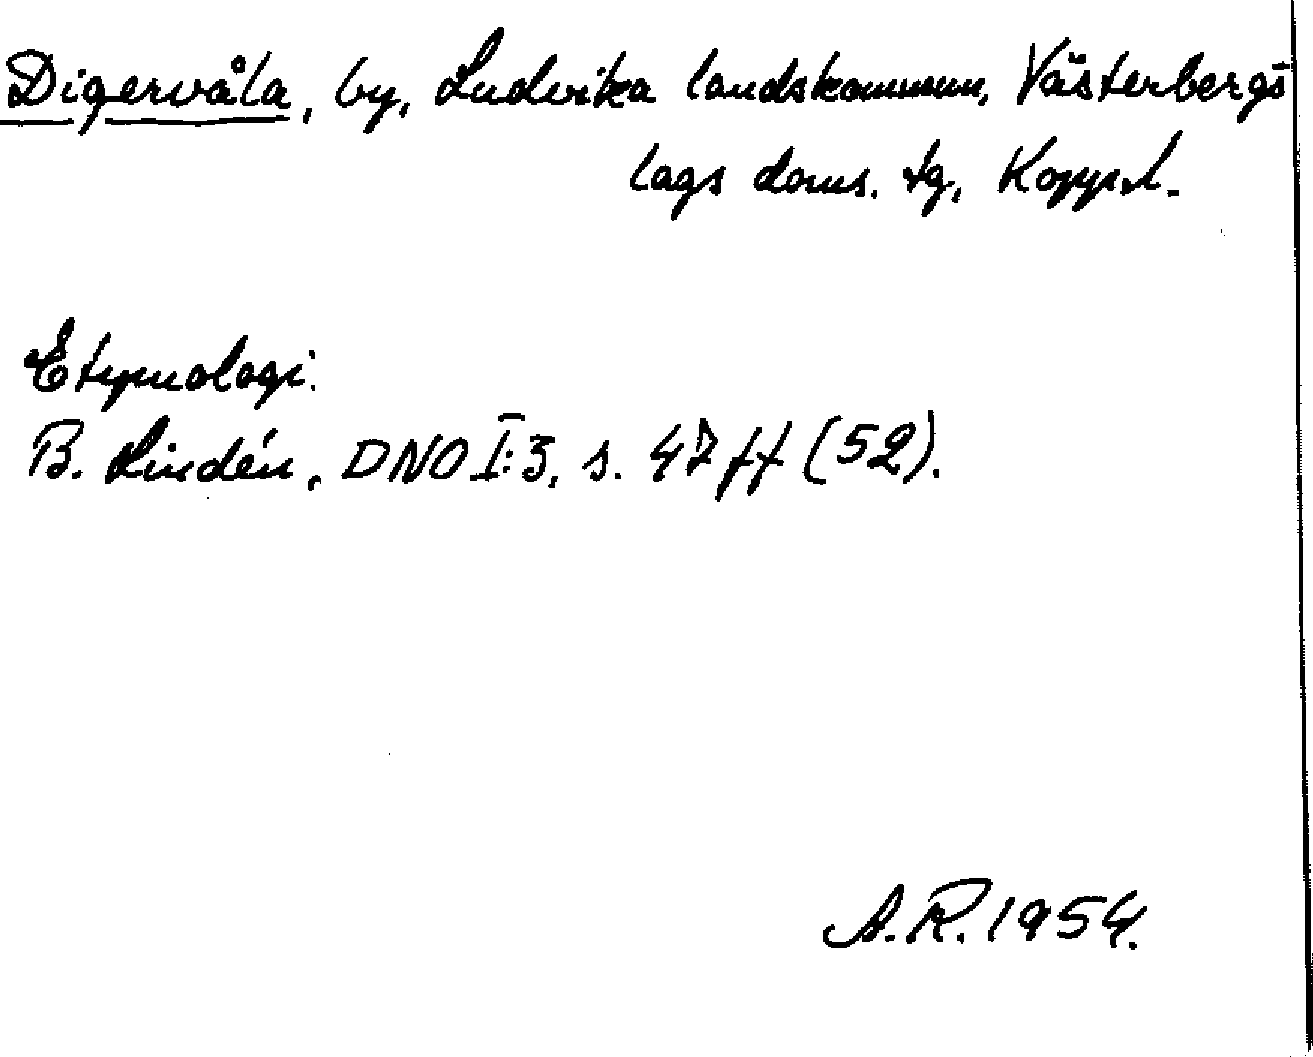 Digervåla, by, Ludvika landskommun, Västerbergs-
lags doms. tg, Kopp.l.
Etymologi.
B. Lindén, DNO I:3, s. 47 ff (52).
A.R. 1954.